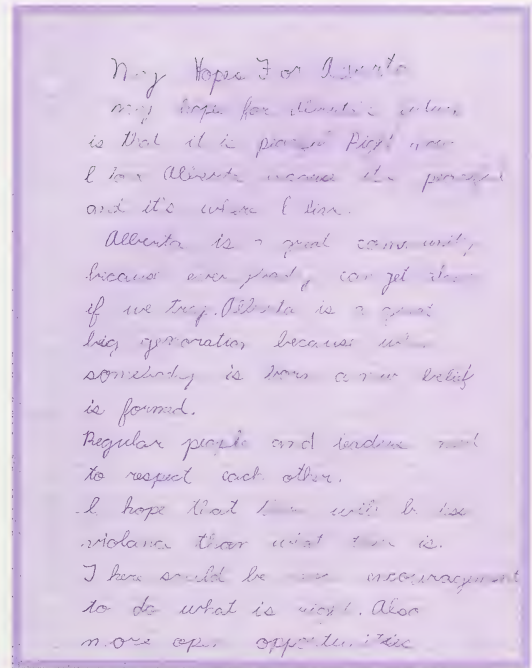 My Hopes For Alberta
my hope for
is that it is
I love Alberta because it's peaceful
and it's where I live.
Alberta is a great community
because everybody can get along
if we try. Alberta is a great
big generation because when
somebody is born a new belief
is formed.
Regular people and leaders need
to respect each other.
I hope that there will be less
violance than what there is.
There sould be more encouragement
to do what is right. Also
more open opportunities